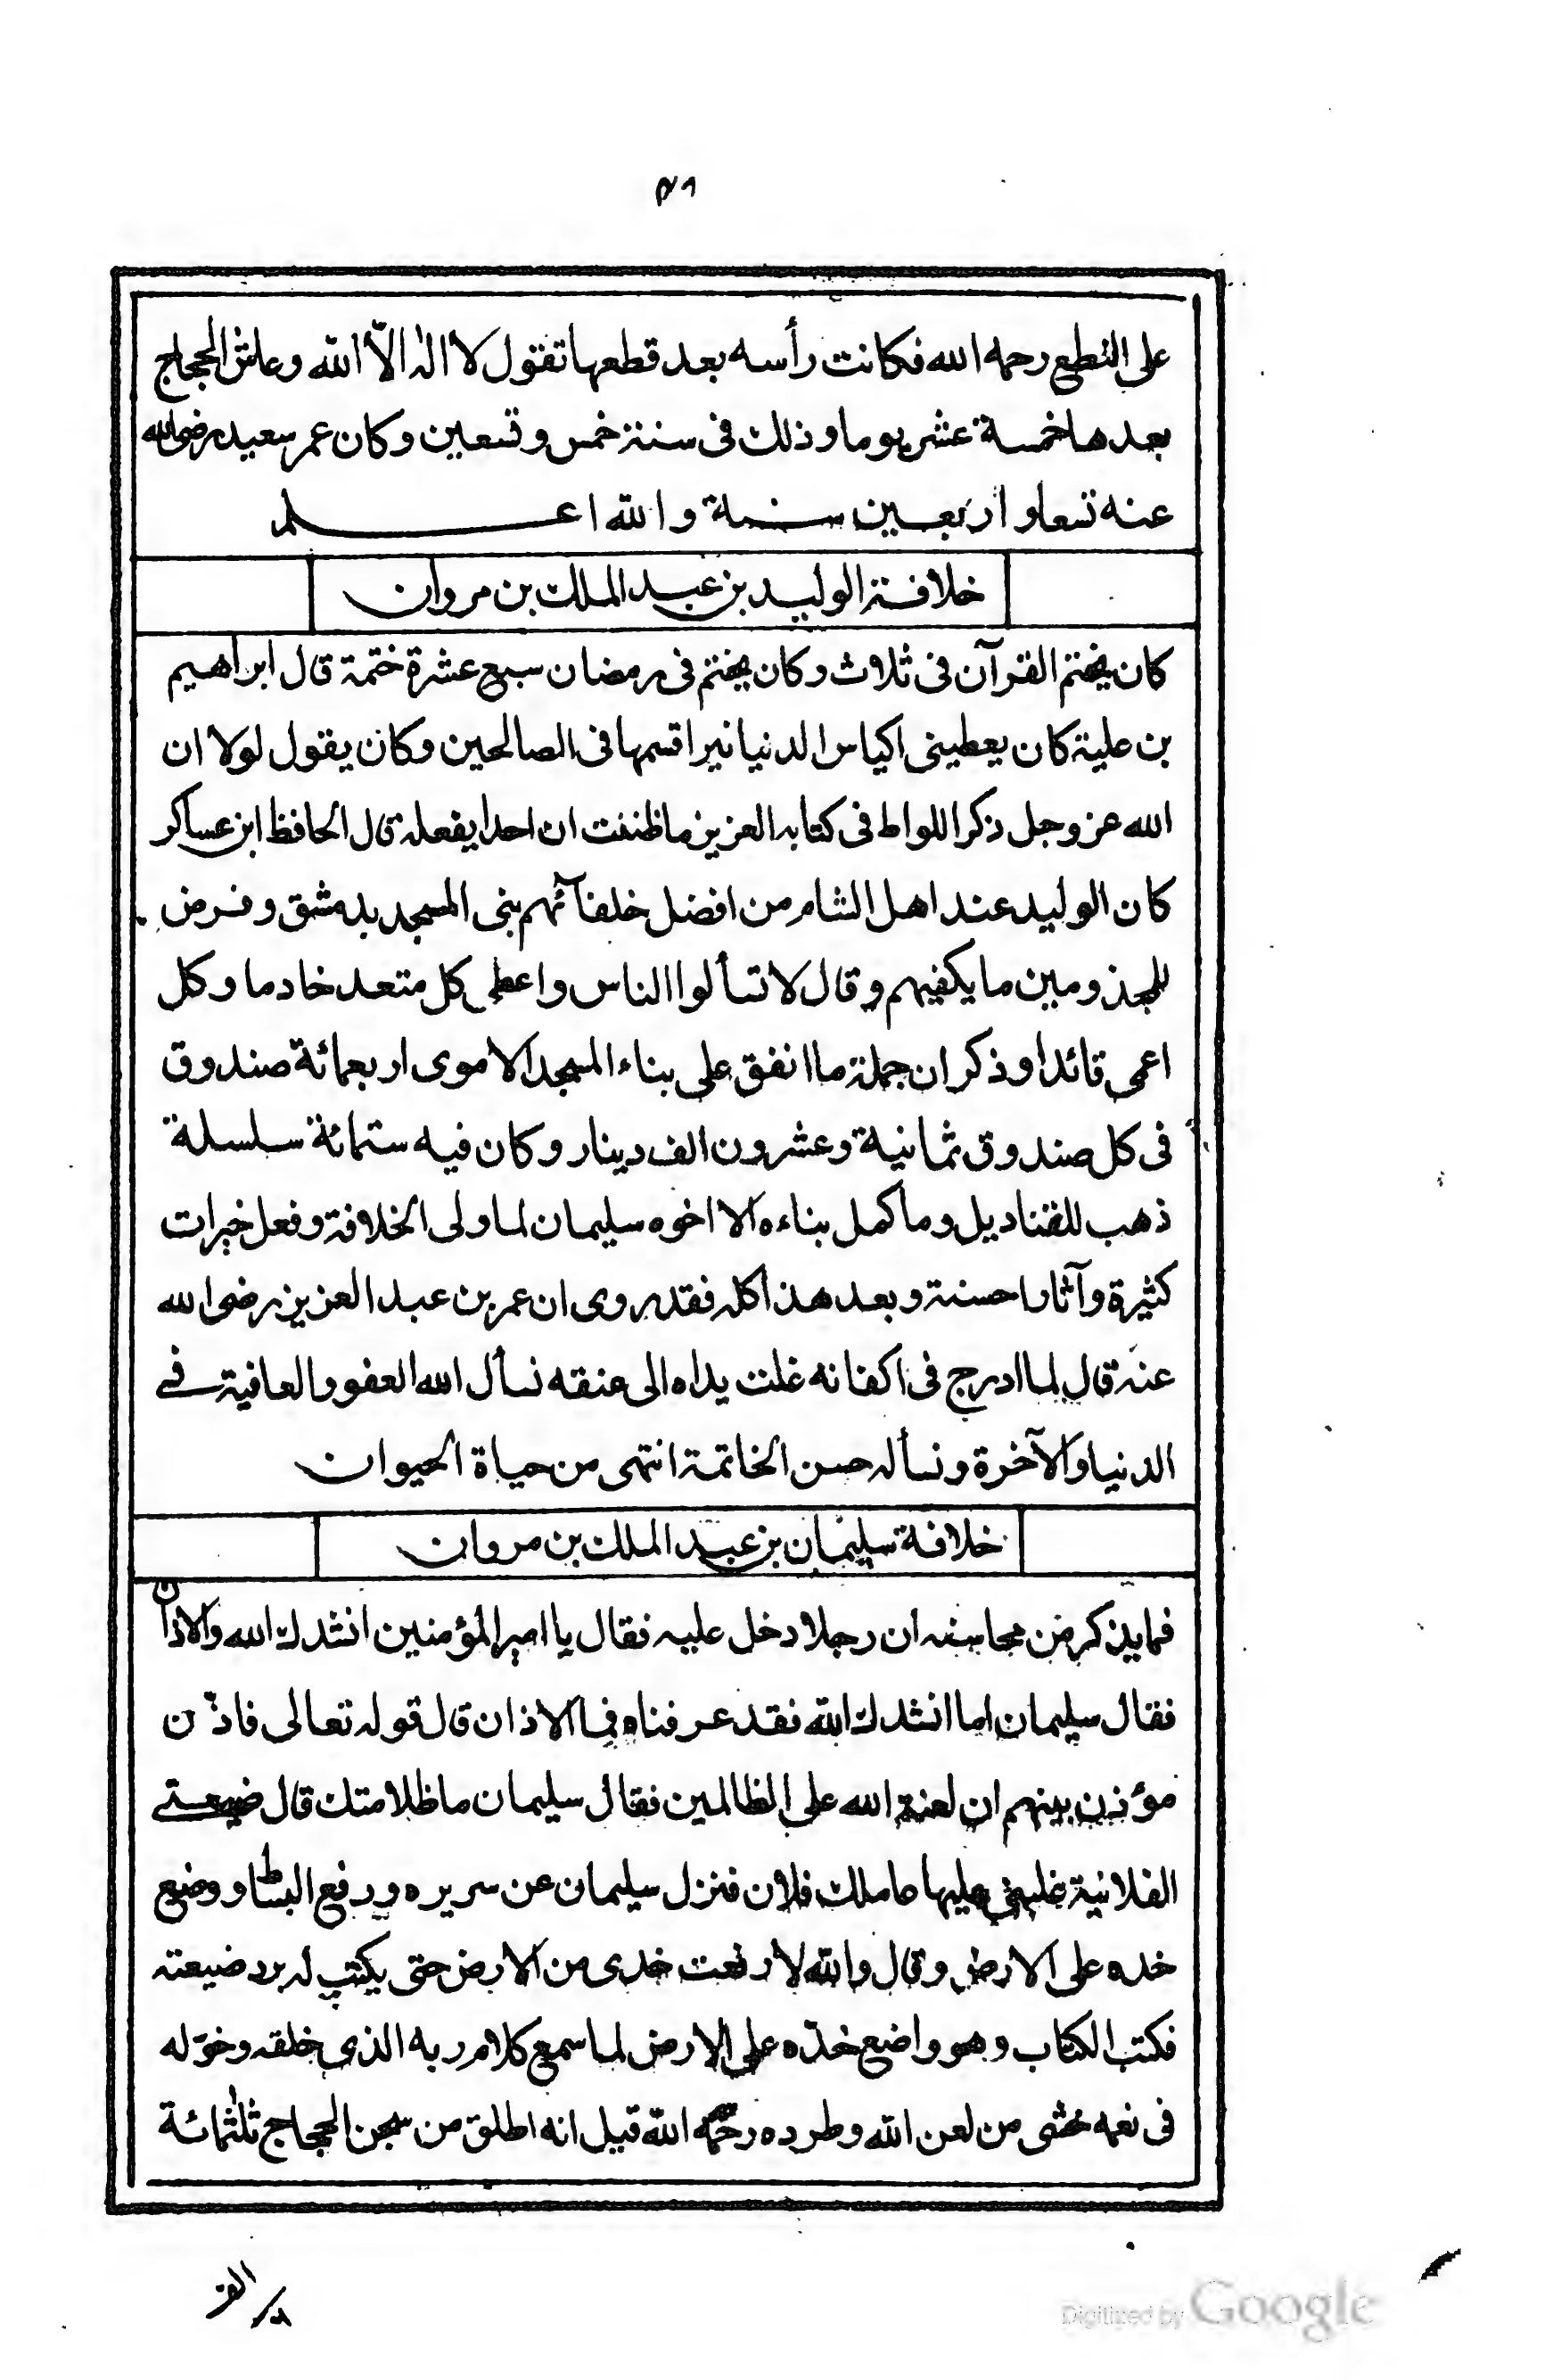 ٤٨
على النطع رحمه الله فكانت رأسه بعد قطعها تقول لا اله الّا الله وعاش الحجاج
بعدها خمسة عشر يوما وذلك فى سنة خمس وتسعين وكان عمر سعيد رضى الله
عنه تسعا واربعين سنة والله اعلم
خلافة الوليد بن عبد الملك بن مروان
كان يختم القرآن فى ثلاث وكان يختم فى رمضان سبع عشرة ختمة قال ابراهيم
بن علية كان يعطينى اكياس الدنيا نيرا قسمها فى الصالحين وكان يقول لولا ان
الله عز وجل ذكر اللواط فى كتابه العزيز ما ظننت ان احدا يفعله قال الحافظ ابن عساكر
كان الوليد عند اهل الشام من افضل خلفآئهم بنى المسجد بدمشق وفرض
للمجذومين ما يكفيهم وقال لا تسألوا الناس واعطى كل متعد خادما وكل
اعمى قائدا وذكر ان جملة ما انفق على بناء المسجد الاموى اربعمائة صندوق
فى كل صندوق ثمانية وعشرون الف دينار وكان فيه ستمائة سلسلة
ذهب للقناديل وما كمل بناءه الا اخوه سليمان لما ولى الخلافة وفعل خيرات
كثيرة وآثارا حسنة وبعد هذا كله فقد روى ان عمر بن عبد العزيز رضى الله
عنه قال لما ادرج فى اكفانه غلت يداه الى عنقه نسأل الله العفو والعافية فے
الدنيا والآخرة ونسأله حسن الخاتمة انتهى من حياة الحيوان
خلافة سليمان بن عبد الملك بن مروان
فمايذكر من محاسنه ان رجلا دخل عليه فقال يا امير المؤمنين انشدك الله والاذان
فقال سليمان اما انشدك الله فقد عرفناه فما الاذان قال قوله تعالى فاذّن
مؤذن بينهم ان لعنة الله على الظالمين فقال سليمان ما ظلامتك قال ضيعتے
الفلانية غلبنى عليها عاملك فلان فنزل سليمان عن سريره ورفع البساط ووضع
خده على الارض وقال والله لا رفعت خدى من الارض حتى يكتب له برد ضيعته
فكتب الكتاب وهو واضع خدّه على الارض لما سمع كلام ربه الذى خلقه وخوّله
فى نعمه خشى من لعن الله وطرده رحمه الله قيل انه اطلق من سجن الحجاج ثلثمائة
الف
Digitized by Google